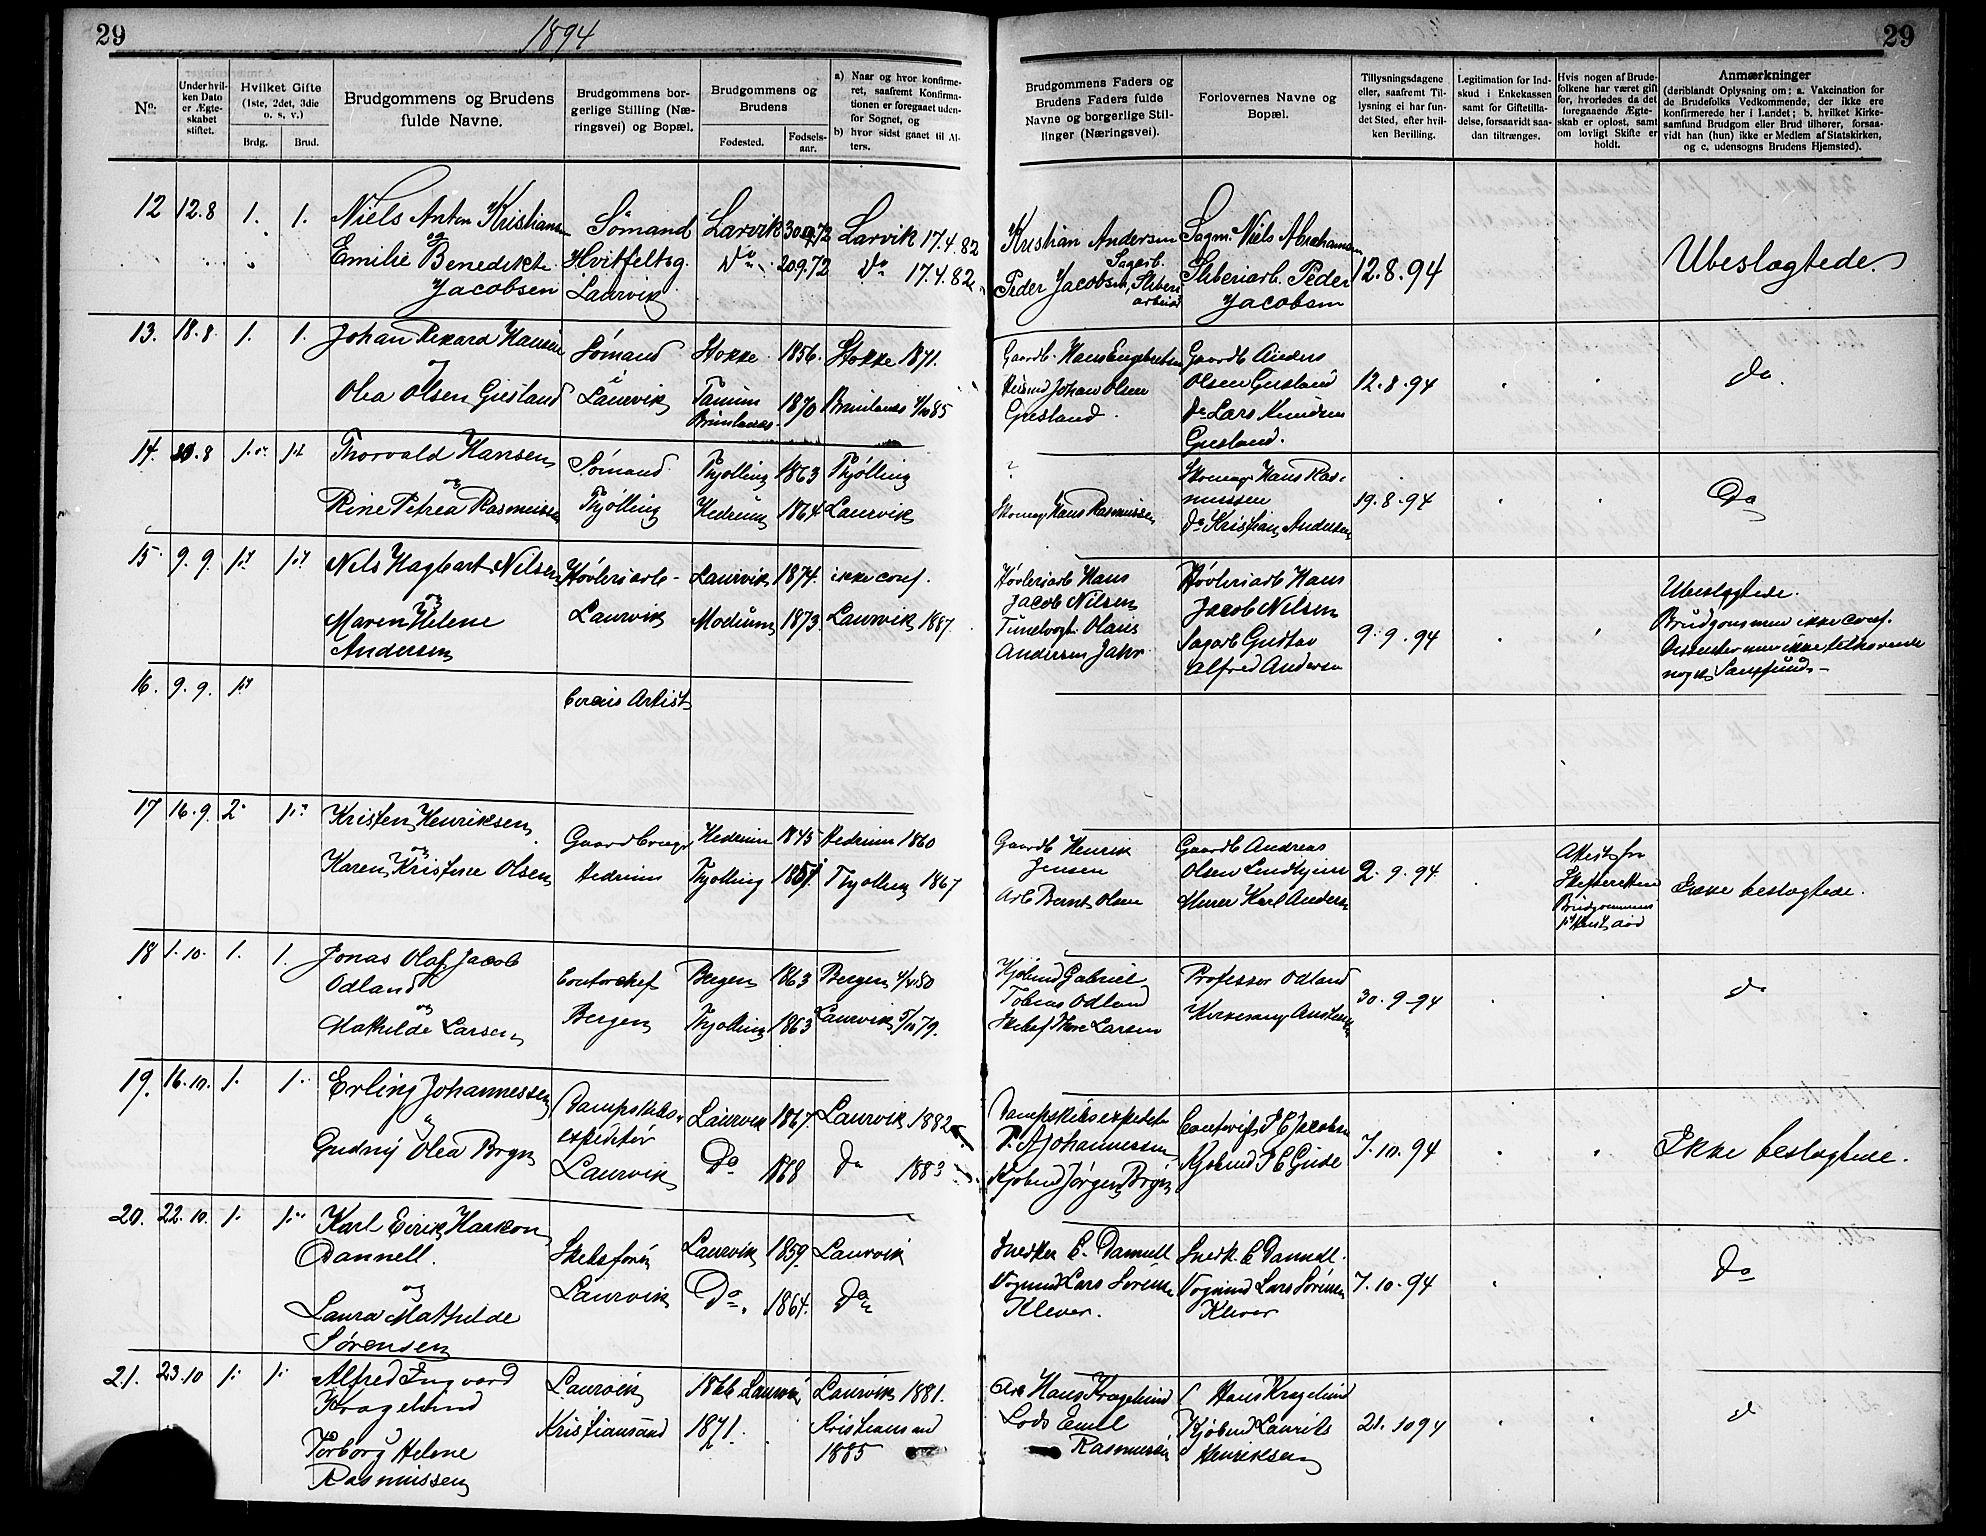 29
1894
29
No.
Under hvilken Dato er Ægteskabet stiftet.
Hvilket Gifte (1ste, 2det, 3die o. s. v.)
Brdg.
Brud.
Brudgommens og Brudens fulde Navne.
Brudgommens borgerlige Stilling (Næringsvei) og Bopæl.
Brudgommens og Brudens
Fødested.
Fødselsaar.
a) Naar og hvor konfirmeret, saafremt Konfirmationen er foregaaet udenfor Sognet, og
b) hvor sidst gaaet til Alters.
Brudgommens Faders og Brudens Faders fulde Navne og borgerlige Stillinger (Næringsvei).
Forlovernes Navne og Bopæl.
Tillysningsdagene eller, saafremt Tillysning ei har fundet Sted, efter hvilken Bevilling.
Legitimation for Indskud i Enkekassen samt for Giftetilladelse, forsaavidt saadan tiltrænges.
Hvis nogen af Brudefolkene har været gift før, hvorledes da det foregaaende Ægteskab er oplost, samt om lovligt Skifte er holdt.
Anmærkninger
(deriblandt Oplysning om: a. Vakcination for de Brudefolks Vedkommende, der ikke ere konfirmerede her i Landet; b. hvilket Kirkesamfund Brudgom eller Brud tilhører, forsaavidt han (hun) ikke er Medlem af Statskirken, og c. udensogns Brudens Hjemsted).
12 12.8 1. 1. Niels Anton Kristiansen Sømand Larvik 72 Larvik 17.4.82
og
Emilie Benedikte Hvitfeltsg. Do 20.9.72 Do 17.4.82
Jacobsen Laurvik
Kristian Andersen Sagarb.
Peder Jacobsen, Sliberiarbeid
Sagm. Niels Abrahamsen
Sliberiarb. Peder Jacobsen
12.8.94
Ubeslægtede.
13. 18.8. 1. 1. Johan Rikard Hansen Sømand Stokke 1856. Stokke 1871.
og
Olea Olsen Gusland Laurvik Tanum Brunlanæs 1870 Brunlanæs 85
Gaardb. Hans Engebretsen
Johan Olsen Gusland.
Gaardb Anders Olsen Gusland
Do Lars Knudsen Gusland.
12.8.94
Do.
14. 8 1ste 1st Thorvald Hansen Sømand Thjølling 1863 Thjølling
og
Rine Petrea Rasmussen Thjølling Hedrum 1864 Laurvik
?
Skomag Hans Rasmussen
Skomag Hans Rasmussen
Do Kristian Andersen
19.8.94
Do
15. 9.9. 1st 1st Nils Hagbart Nilsen Høvleriarb- Laurvik 1874. ikke conf.
og
Maren Helene Andersen Laurvik Modum 1873. Laurvik 1887.
Høvleriarb Hans Jacob Nilsen
Olaus Andersen Jahr
Høvleriarb Hans Jacob Nilsen
Sagarb Gustav Alfred Andersen
9.9.94
Ubeslægtede.
Brudgommen ikke conf.
ikke tilhørende
noget Samfund-
16. 9.9. 1st Circus Artist
17 16.9. 2. 1ste Kristen Henriksen Gaardbruger Hedrum 1845 Hedrum 1860
og
Karen Kristine Olsen Hedrum Thjølling 1851. Thjølling 1867
Gaardb Henrik Jensen
Arb Bernt Olsen
Gaardb Andreas Olsen
Murer Karl Anders
2.9.94
Attest fra
Skifteretten
Brudgommens
død
Ikke beslægtede.
18 1.10. 1. 1. Jonas Olaf Jacob Odland Contorchef Bergen 1863 Bergen
og
Mathilde Larsen Bergen Thjølling 1863 Laurvik 79.
Kjøbmd Gabriel Tobias Odland
Larsen
Professor Odland
Kirkesang
30.9-94
do
19. 16.10. 1. 1. Erling Johannessen Dampskibsexpeditør Laurvik 1867 Laurvik 1882
Gudny Olea Bryn Laurvik Do 1868 Do 1883
Dampskibsexpeditør Johannessen
Kjøbmd Jørgen Bryn
Jacobsen
Kjøbmd Gude
7.10.94
Ikke beslægtede.
20. 22.10. 1. 1. Karl Eirik Haakon Dannell. Skibsfører Laurvik 1859. Laurvik
og
Laura Mathilde Sørensen Laurvik Do. 1864. Do
Snedker C. Dannell
Vognmd Lars Sørensen Klever.
Snedk. C Dannell.
Vognmd Lars Sørensen Klever
7.10.94
Do
21. 23.10 1. 1. Alfred Ingvard Kragelund Laurvik 1866 Laurvik Laurvik 1881.
Torborg Helene Rasmussen Kristiansand 1871. Kristiansand 1885
Hans Kragelund
Lods Emil Rasmussen
Hans Kragelund
Kjøbmd Laurits Henriksen
21.10 94
d